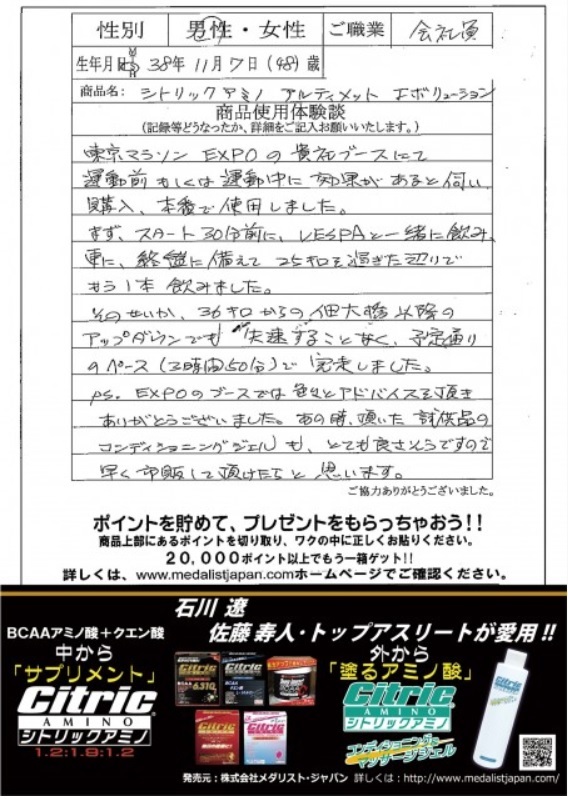 性別 男性・女性 ご職業 会社員
生年月日 38年11月7日(48)歳
商品名: シトリックアミノ アルティメット エボリューション
商品使用体験談
(記録等どうなったか、詳細をご記入お願いいたします。)
東京マラソン EXPOの貴社ブースにて
運動前もしくは運動中に効果があると伺い、
購入、本番で使用しました。
まず、スタート30分前に、VESPAと一緒に飲み、
更に、終盤に備えて25キロを過ぎた辺りで
もう1本飲みました。
そのせいか、36キロからの佃大橋以降の
アップダウンでも"失速することなく、予定通り
のペース(3時間50分)で完走しました。
ps. EXPOのブースでは色々とアドバイスを頂き
ありがとうございました。あの時、頂いた試供品の
コンディショニングジェルも、とても良さそうですので
早く市販して頂けたらと思います。
ご協力ありがとうございました。
ポイントを貯めて、プレゼントをもらっちゃおう!!
商品上部にあるポイントを切り取り、ワクの中に正しくお貼りください。
20,000ポイント以上でもう一箱ゲット!!
詳しくは、www.medalistjapan.comホームページでご確認ください。
石川 遼
佐藤 寿人・トップアスリートが愛用!!
BCAAアミノ酸+クエン酸
中から
「サプリメント」
Citric
AMINO
シトリックアミノ
1.2:1.9:1.2
Citric
6,310
Citric
Citric
Citric
外から
「塗るアミノ酸」
Citric
AMINO
シトリックアミノ
コンディショニング&
マッサージジェル
発売元:株式会社メダリスト・ジャパン 詳しくは:http://www.medalistjapan.com/